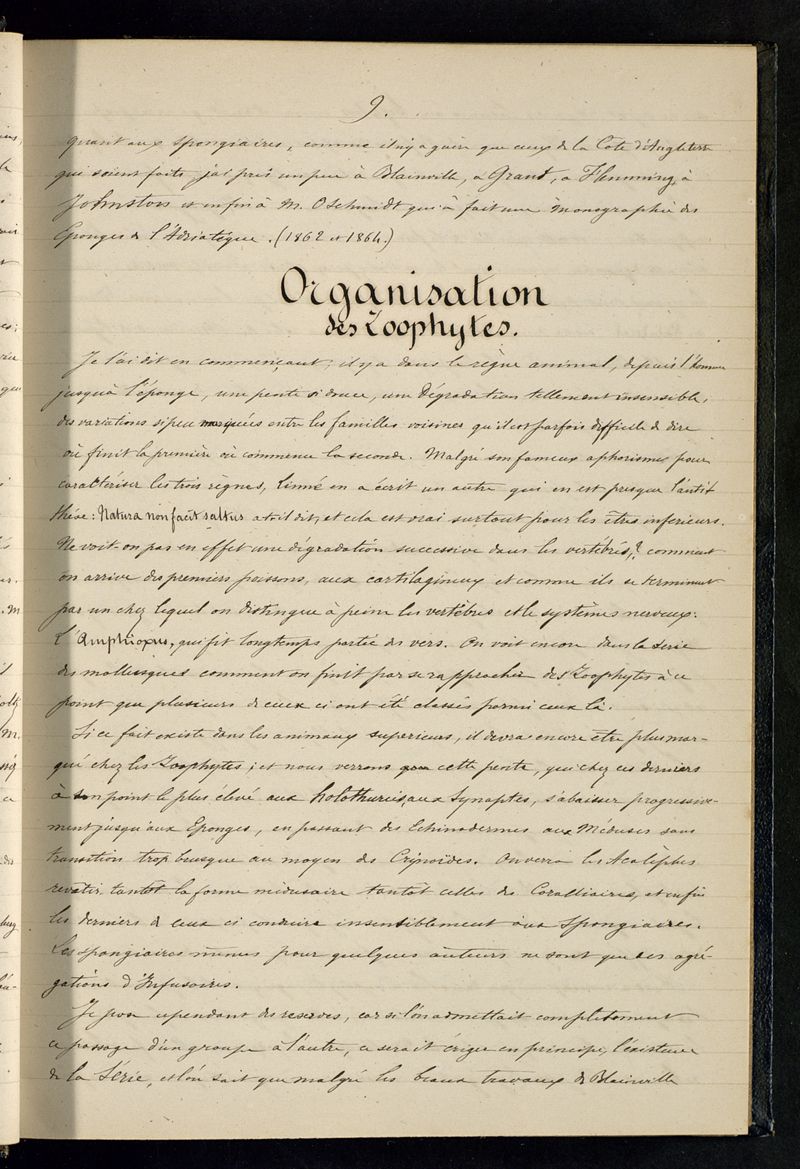 9.
quant aux spongiaires, comme il n'y a guère que ceux de la Cote d'Angleterre
qui soient faits, j'ai pris un peu à Blainville, a Grant, a Flemming, à
Johnston et enfin à M. O Schmidt qui à fait une monographie des
Eponges de l'Adriatique. (1862 et 1864.)
Organisation
des Zoophytes.
Je l'ai dit en commençant, il y a dans le règne animal, depuis l'homme
jusqu'à l'éponge, une pente si douce, une Dégradation tellement insensible,
des variations si peu marquées entre les familles voisines qu'il est parfois difficile de dire
où finit la première où commence la seconde. Malgré son fameux aphorisme pour
caractériser les trois regnes, Linné en a écrit un autre qui en est presque l'antit
thèse: Natura non facit saltus a t-il dit, et cela est vrai surtout pour les êtres inferieurs.
Ne voit-on pas en effet une dégradation successive dans les vertébrés,? comment
on arrive des premiers poissons, aux cartilagineux et comme ils se terminent
par un chez lequel on distingue à peine les vertèbres et le systèmes nerveux.
L'Amphioxus, qui fit longtemps partie des vers. On voit encore dans la serie
des mollusques comment on finit par se rapprocher des Zoophytes à ce
point que plusieurs de ceux ci ont été classés parmi ceux là.
Si ce fait existe dans les animaux superieurs, il devra encore être plus mar-
qué chez les Zoophytes; et nous verrons que cette pente, qui chez ces derniers
à son point le plus élevé aux holothuries aux Synaptes, s'abaisser progressive-
ment jusqu'aux Eponges, en passant des Echinodermes aux Méduses sans
transition trop brusque au moyen des Crinoides. On verra les Acalèphes
revêtir tantôt la forme médusaire tantôt celles des Coralliaires, et enfin
les derniers de ceux ci conduire insensiblement aux Spongiaires.
Les spongiaires mêmes pour quelques auteurs ne sont que des agré-
gations d'Infusoires.
Je pose cependant des reserves, car si l'on admettait completement
ce passage d'un groupe à l'autre, ce serait ériger en principe, l'existence
de la Série, et l'on sait que malgré les beaux travaux de Blainville